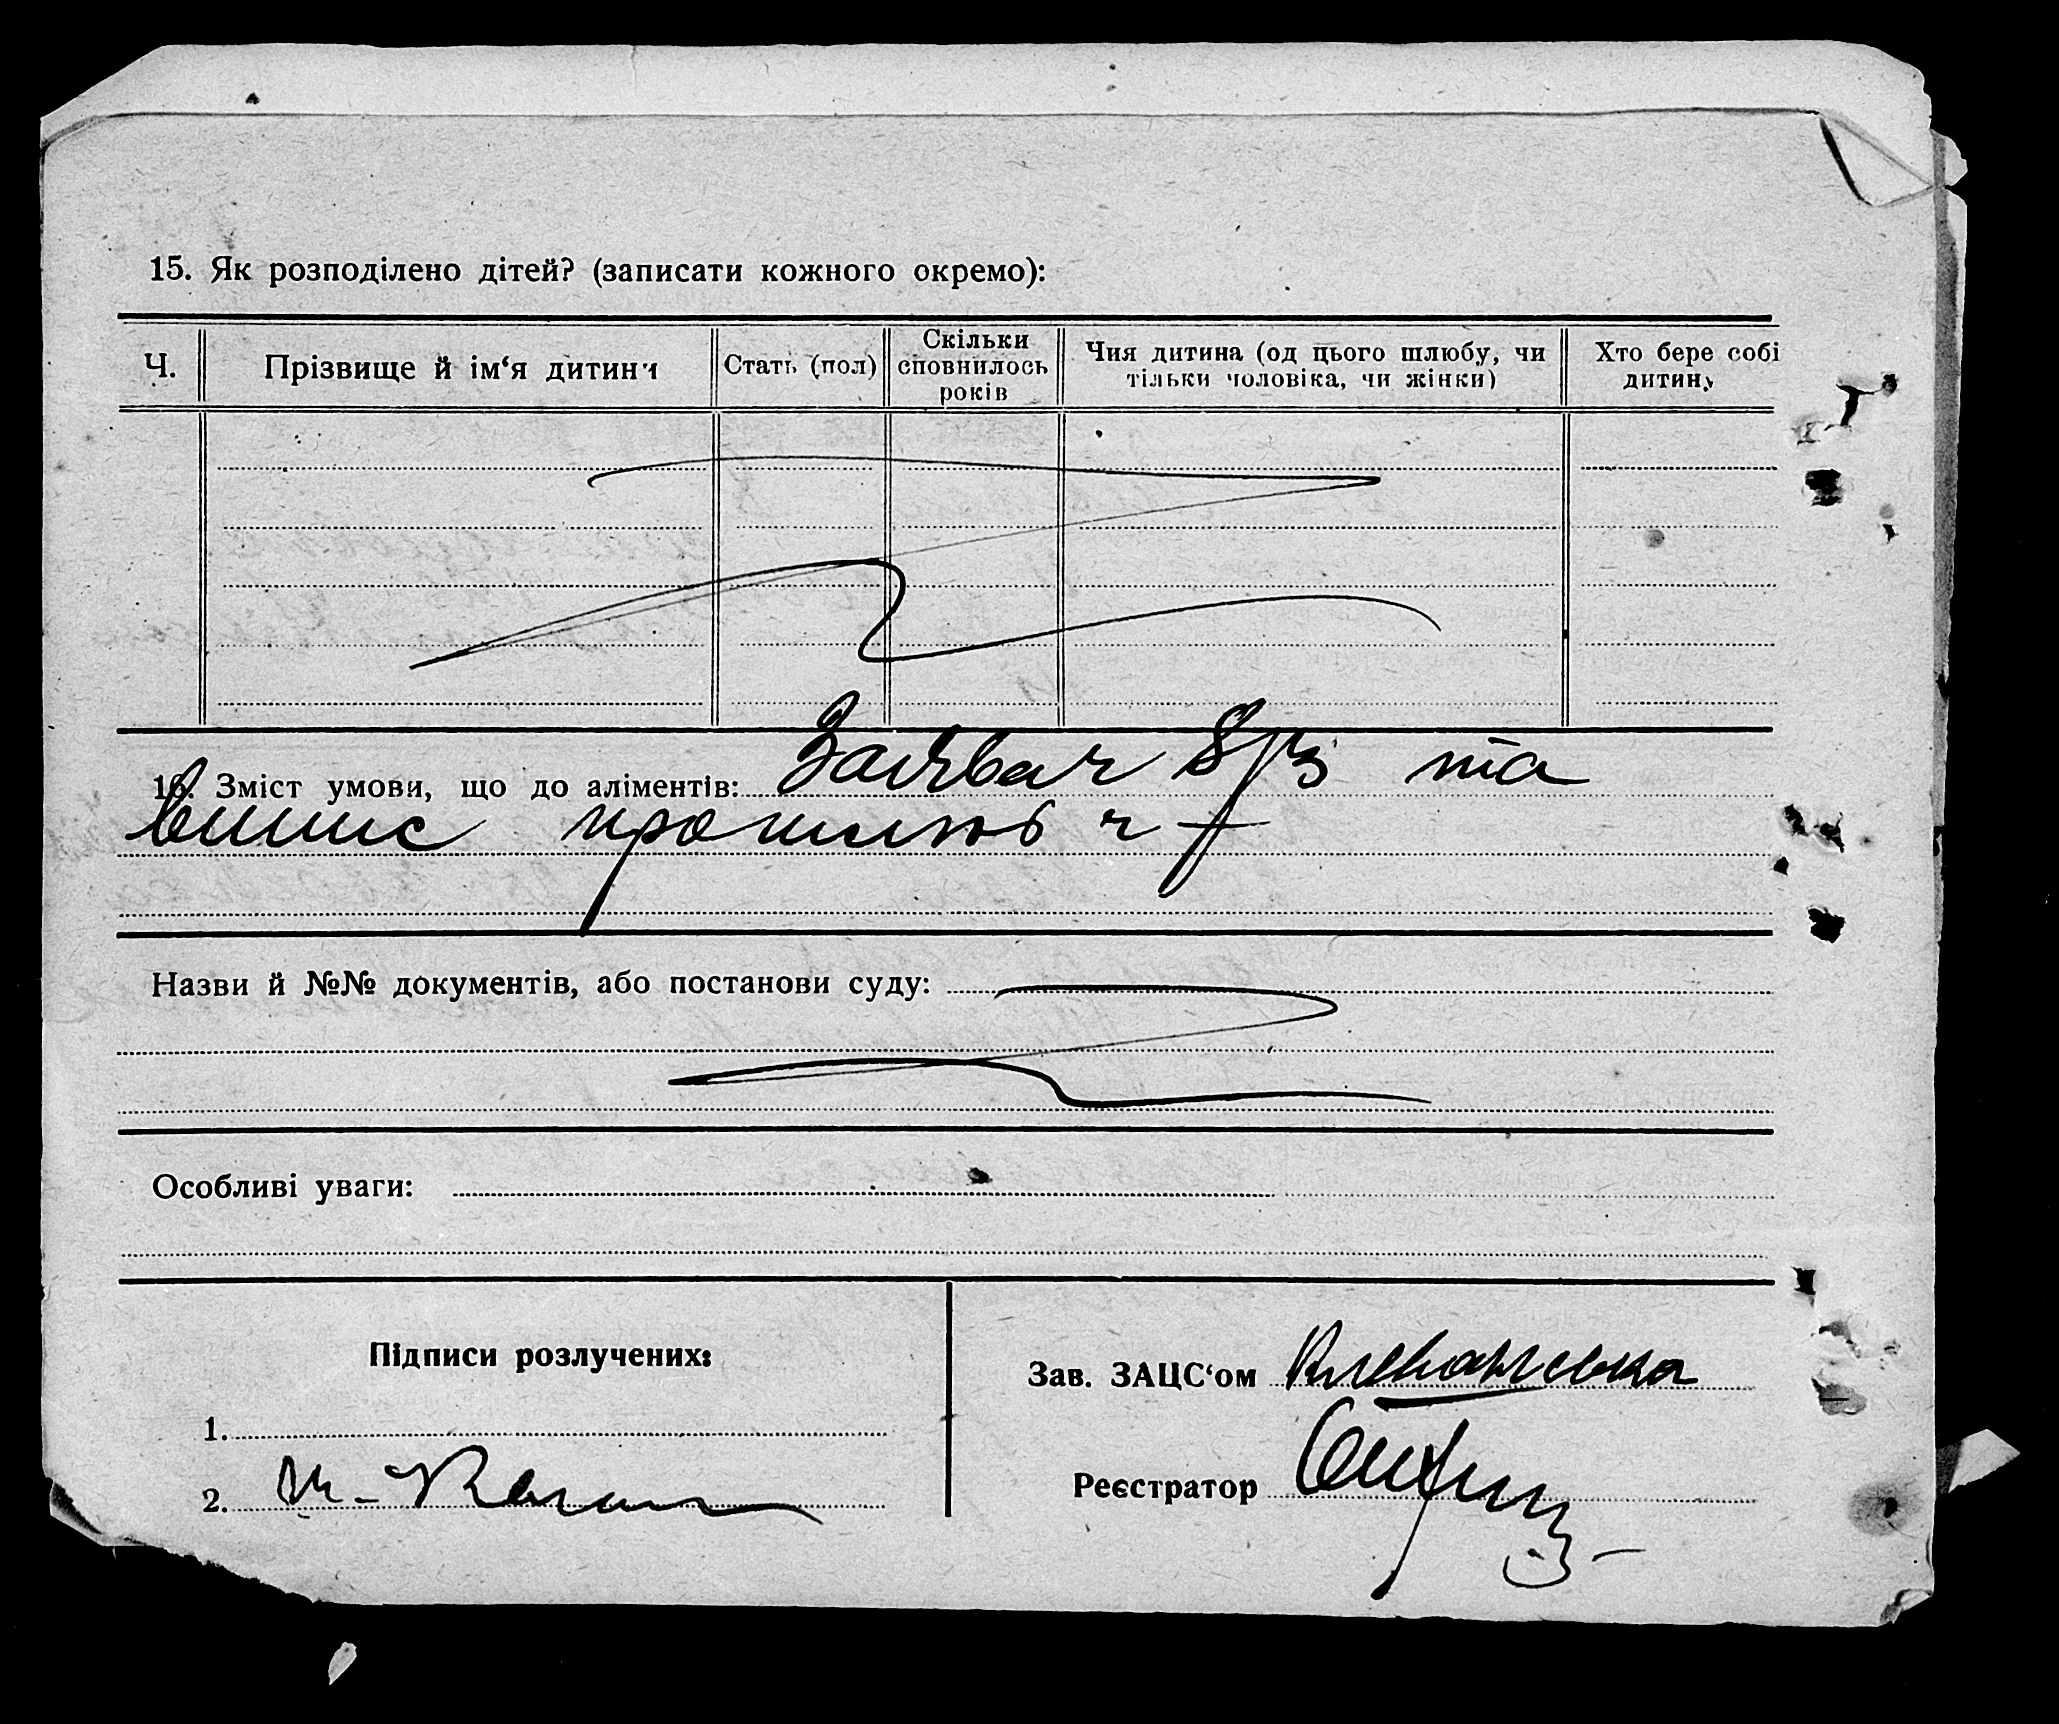 15. Як розподілено дітей? (записати кожного окремо):
Ч.
Прізвище й ім‘я дитини
Стать (пол)
Скільки
сповнилось
років
Чия дитина (од цього шлюбу, чи
тільки чоловіка, чи жінки)
Хто бере собі
дитину
16. Зміст умови, що до аліментів: та
Назви й №№ документів, або постанови суду:
Особливі уваги:
Підписи розлучених:
1.
2.
Зав. ЗАЦС‘ом
Реєстратор